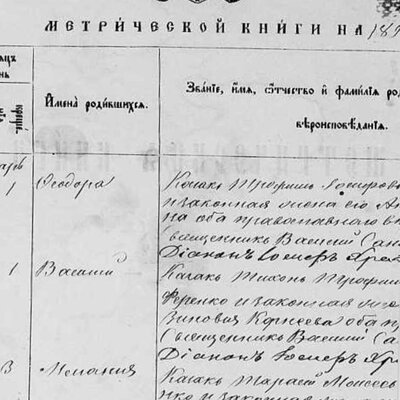 МЕТРИ́ЧЕСКОЙ КНИ́ГИ НА 18
Имена родившихся.
Зва́нїе, и́мя, ѻ́тчество и фами́лїя ро
вѣроисповѣданїя.
1 Ѳеодора
Козакъ Трофимъ Іосифов
и законная жена его А
на оба православного в
Священникъ Василий Са
Діаконъ Іосифъ Хре
1 Василий
Казакъ Тихонъ Трофим
Ференко и законная же
Зиновия Корнеева оба п
Священникъ Василий
Діаконъ Іосифъ Хре
Мелания
Казакъ Тарасий Моисеев
нко и законная